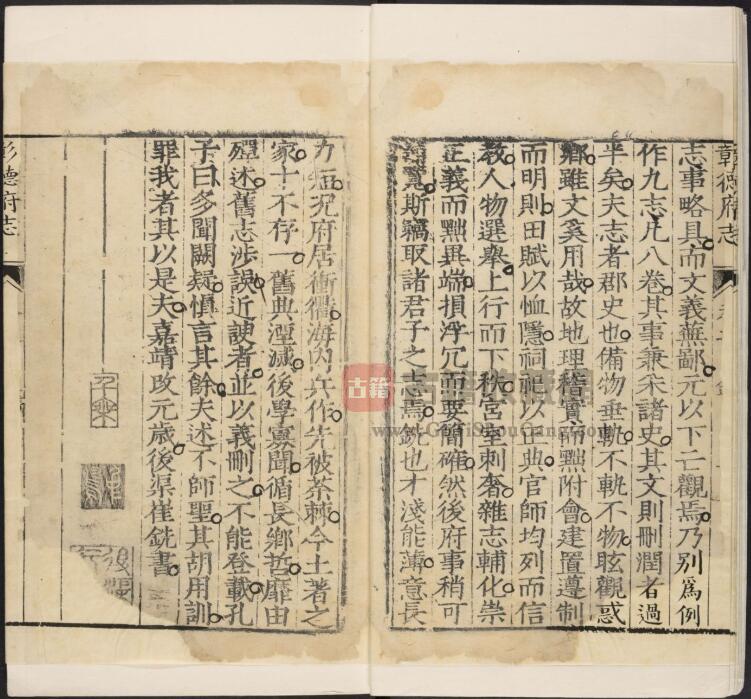 彰德府志
志事略具而文義蕪鄙元以下亡觀焉乃別爲例
作九志凡八卷其事兼采諸史其文則刪潤者過
半矣夫志者郡史也備物垂軌不軌不物眩觀惑
鄉雖文奚用哉故地理稽實而黜附會建置遵制
而明則田賦以恤隱祠祀以正典官師均列而信
教人物選舉上行而下秩宮室刺奢雜志輔化崇
正義而黜異端損浮冗而要簡確然後府事稍可
覽斯竊取諸君子之志焉銑也才淺能薄意長
力短况府居衝衢海内兵作先被荼棘今土著之
家十不存一舊典湮滅後學寡聞循長鄉哲靡由
殫述舊志涉誤近諛者並以義刪之不能登載孔
子曰多聞闕疑慎言其餘夫述不師聖其胡用訓
罪我者其以是夫嘉靖改元歲後渠崔銑書
彰德府志
古籍
www.GujiShouCang.com